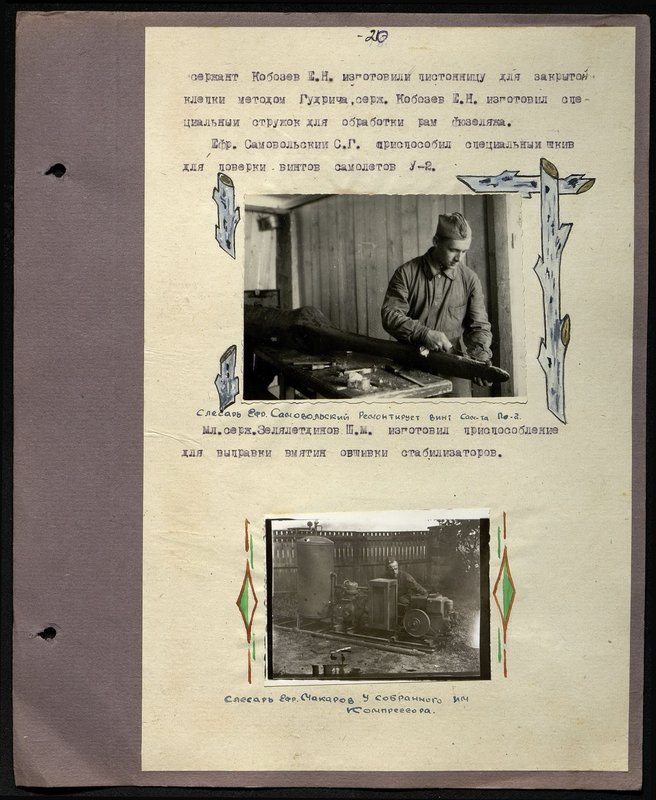 -20
сержант Кобозев Е.Н. изготовили пистонницу для закрытой
клепки методом Гудрича,серж. Кобозев Е.Н. изготовил спе-
циальный стружок для обработки рам фюзеляжа.
Ефр. Самовольский С.Г. приспособил специальный шкив
для поверки винтов самолетов У-2.
Слесарь Ефр. Самовольский Ремонтирует винт Сам-та По-2.
Мл.серж.Зелялетдинов Ш.М. изготовил приспособление
для выправки вмятин обшивки стабилизаторов.
Слесарь Ефр. Макаров у собранного им
Компрессора.